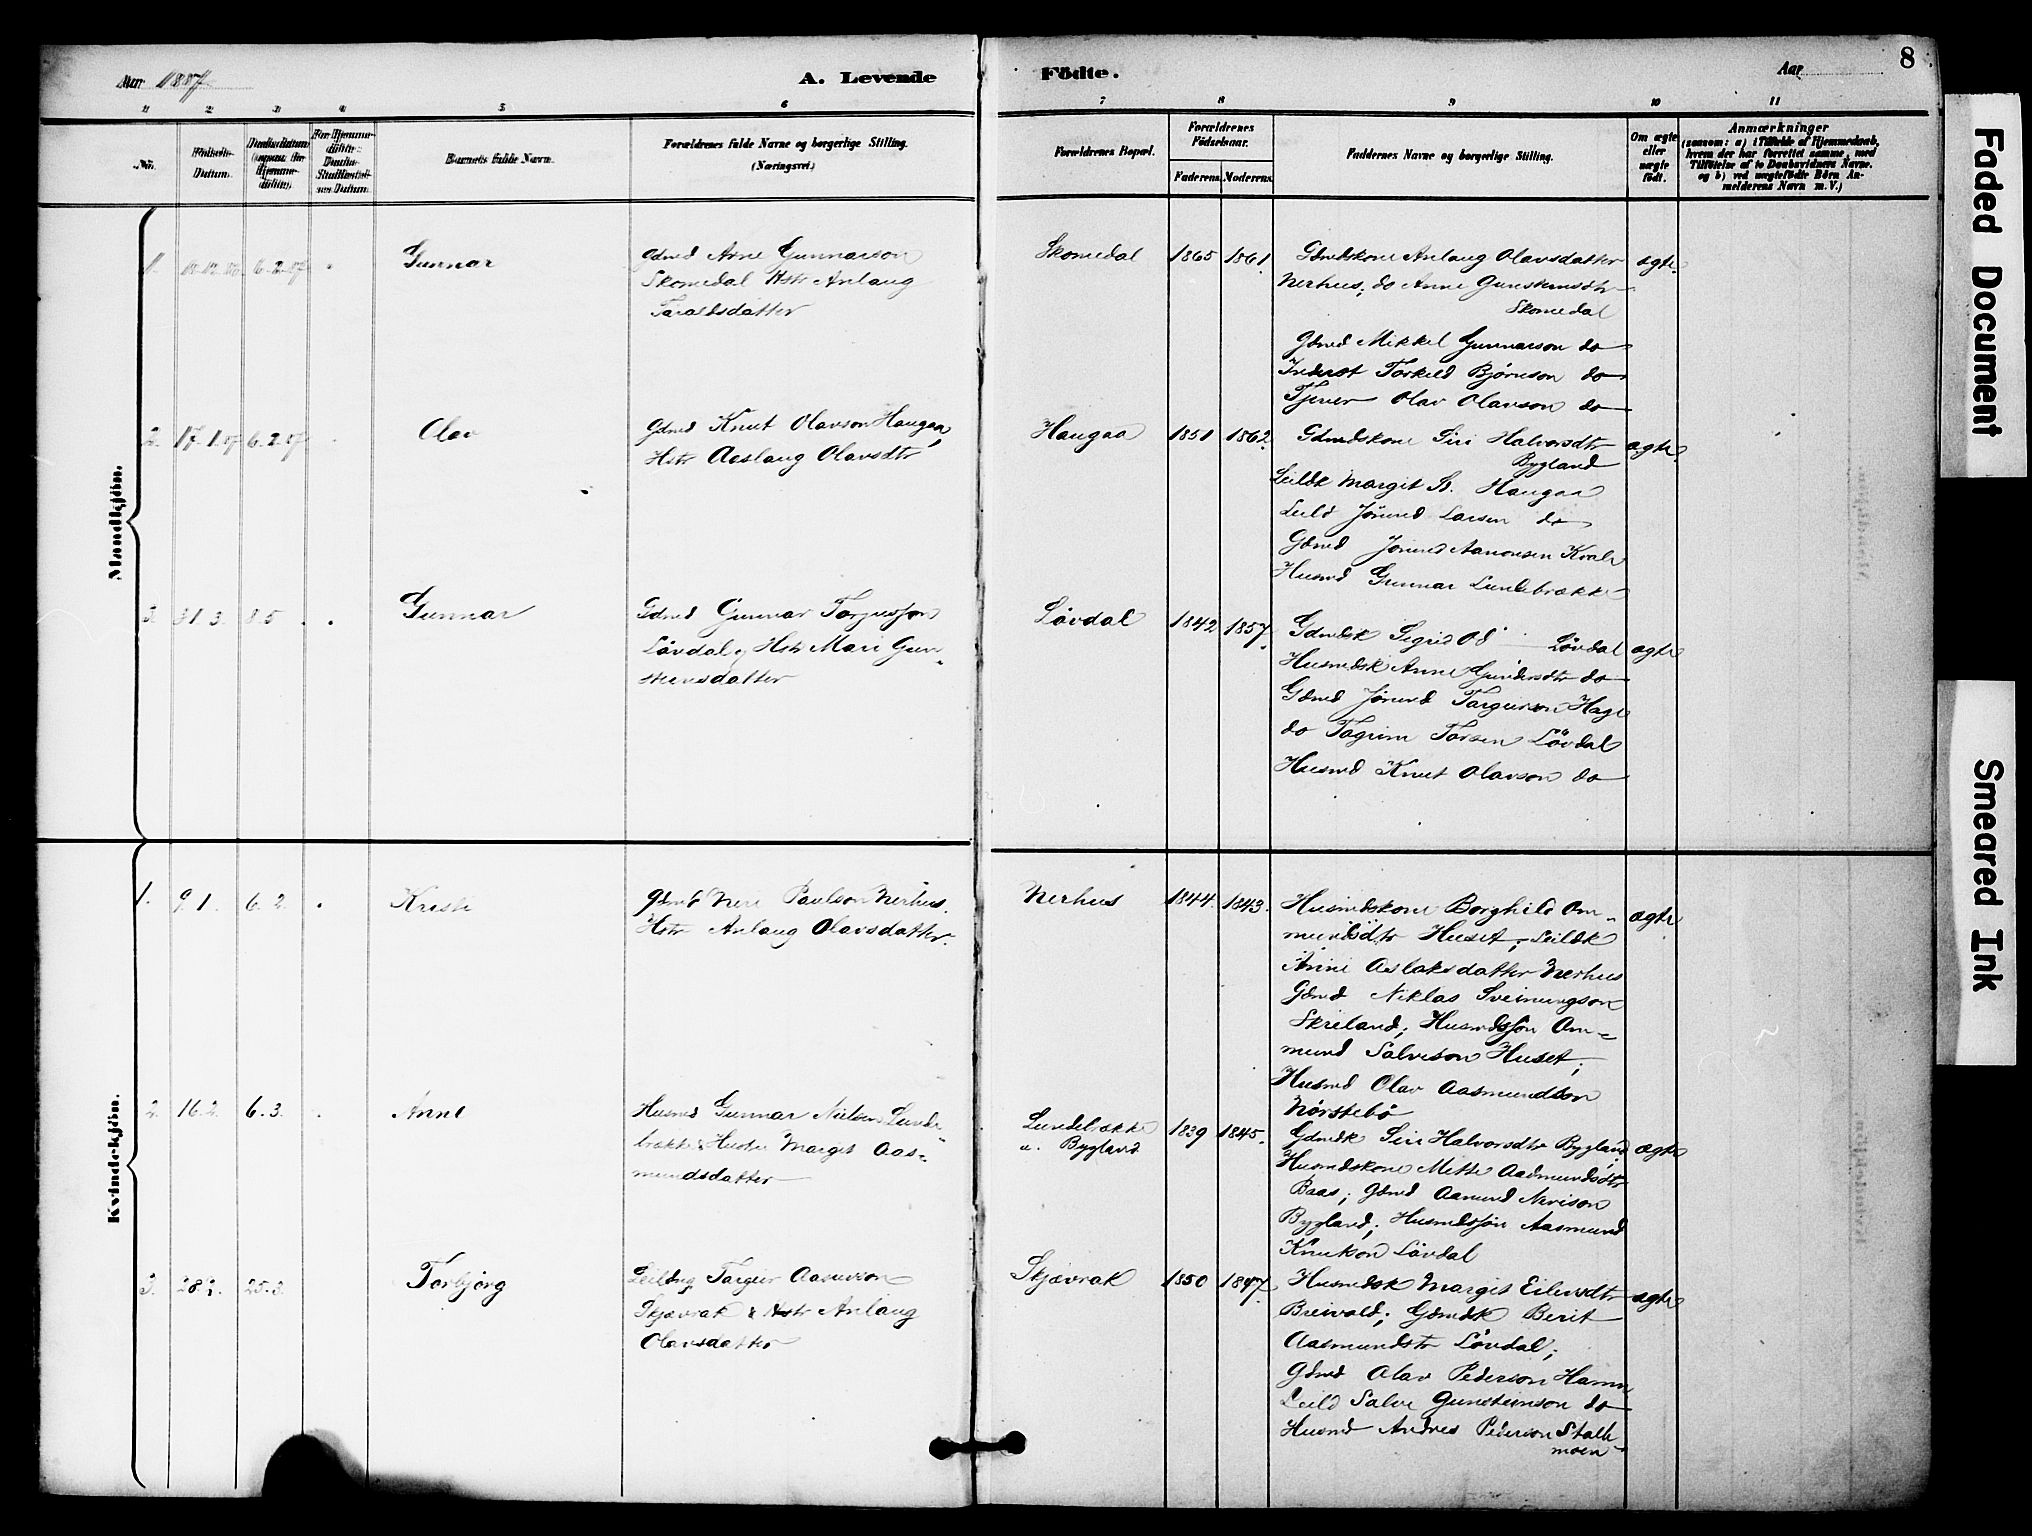 Aar 1887
A. Levende
Födte.
Aar
8
1 2 3 4 5 6 7 8 9 10 11
No.
Födsels-Datum.
Barnets fulde Navn.
Forældrenes fulde Navne og borgerlige Stilling.
(Næringsvei.)
Forældrenes Bopæl.
Forældrenes
Födselsaar.
Faderens. Moderens.
Faddernes Navne og borgerlige Stilling.
Om ægte
eller
uægte
födt.
Anmærkninger
(saasom: a) i Tilfælde af Hjemmedaab,
hvem der har forrettet samme, med
Tilföielse af to Daabsvidners Navne,
og b) ved uægtefödte Börn An-
melderens Navn m. V.)
Mandkjön.
1. 6.2.87 Gunnar
Gdmd Arne Gunnarson
Skomedal Hstr Anlaug
Taraldsdatter
Skomedal 1865 1861.
Gdmdskone Anlaug Olavsdatter
Nerhus; do Anne Gunsteinsdtr
Skomedal
Gdmd Mikkel Gunnarson do
Inderst Torkild Bjørnson do
Tjener Olav Olavson do
ægte.
2. 17.1.87 6.2.87 Olav
Gdmd Knut Olavson Haugaa,
Hstr Aaslaug Olavsdtr
Haugaa 1851 1862.
Gdmdskone Siri Halvorsdtr
Bygland
Leildk Margit S. Haugaa
Leild Jörund Larsen do
Gdmd Jörund Aanonsen Kvale
Husmd Gunnar Lundebrække
ægte.
3. 31.3. 8.5 Gunnar
Gdmd Gunnar Torjusson
Lövdal, Hstr Mari Gun-
steinsdatter
Lövdal 1842 1857.
Gdmdsk Sigrid Od Lövdal
Husmdsk Anne Gundersdtr do
Gdmd Jörund Targeirson Hage
do Tagrim Tarsen Lövdal
Husmd Knut Olavson do
ægte
Kvindekjön.
1. 9.1. 6.2. Kristi
Gdmd Neri Paulson Nerhus.
Hstr Anlaug Olavsdatter.
Nerhus 1844. 1843.
Husmdskone Borghild Om-
mundsdtr Huset; Leildk
Anne Aslaksdatter Nerhus
Gdmd Niklas Sveinungson
Skreland; Husmdssön Om-
mund Salveson Huset;
Husmd Olav Aasmundson
Nörstebö
ægte
2. 16.2. 6.3. Anne
Husmd Gunnar Nielsen Lunde-
brække & Hustru Margit Aas-
mundsdatter
Lundebrække
u. Bygland 1839 1845.
Gdmdk Siri Halvorsdtr Bygland
Husmdskone Mette Aasmundsdtr
Baas; Gdmd Aanund Nerison
Bygland; Husmdssön Aasmund
Knutson Lövdal
ægte
3. 25.3. Torbjörg
Leildng Targeir Aanunson
Skjævrak & Hstr Anlaug
Olavsdatter
Skjævrak 1850 1847.
Husmdsk Margit Eilevsdtr
Breivold; Gdmdk Berit
Aasmundstr Lövdal;
Gdmd Olav Pederson Hamre
Leild Salve Gunsteinson do
Husmd Andres Pederson Stalle-
moen
ægte
Faded Document
Smeared Ink